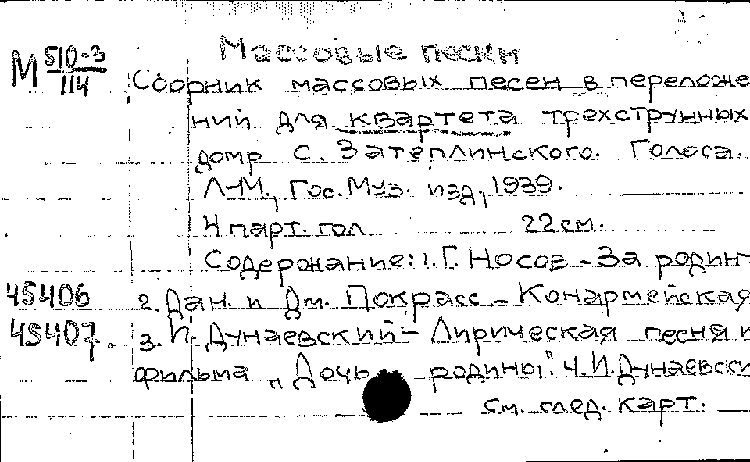 Массовые песни
М 510-3/114
Сборник массовых песен в переложе
ний для квартета трехструнных
домр С. Затеплинского. Голоса.
Л-М., Гос. Муз. изд., 1939.
4 парт. гол 22 см.
Содержание: 1. Г. Носов - За родин
45406 2. Дан. и Дм. Покрасс - Конармейская
45407. 3. И. Дунаевский - Лирическая песня и
фильма "Дочь родины" 4. И. Дунаевски
см. след. карт.